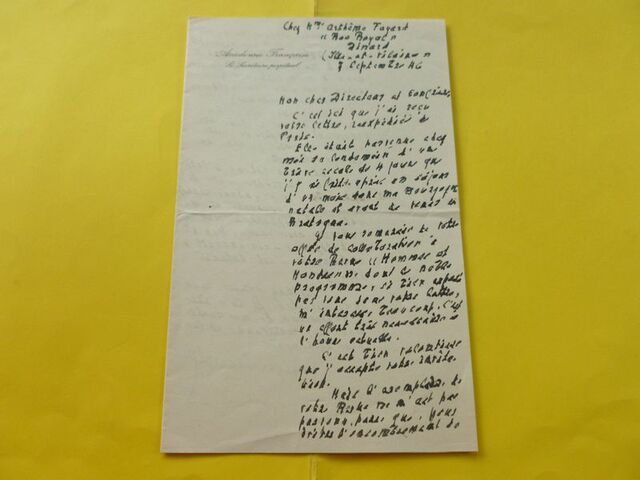 Chez Mme Arthème Fayard
" Bon Royal "
Dinard
(Ille-et-Vilaine)
7 Septembre 46
Académie Française
Le Secrétaire perpétuel
Mon cher Directeur et Confrère,
C'est ici que j'ai reçu
votre lettre, réexpédiée de
Paris.
Elle était parvenue chez
moi au lendemain d'un
très court de 4 jours que
j'y ai fait après un séjour
d'un mois dans ma Bourgogne
natale et avant de venir en
Bretagne.
Je vous remercie de votre
offre de collaboration à
votre Revue " Hommes et
Mondes " dont le noble
programme, si bien exposé
par vous dans votre lettre,
m'intéresse beaucoup. C'est
un effort très nécessaire à
l'heure actuelle.
C'est bien volontiers
que j'accepte votre invita-
tion.
Mais l'exemplaire de
votre Revue ne m'est pas
parvenu, parce que, pour
éviter l'encombrement de